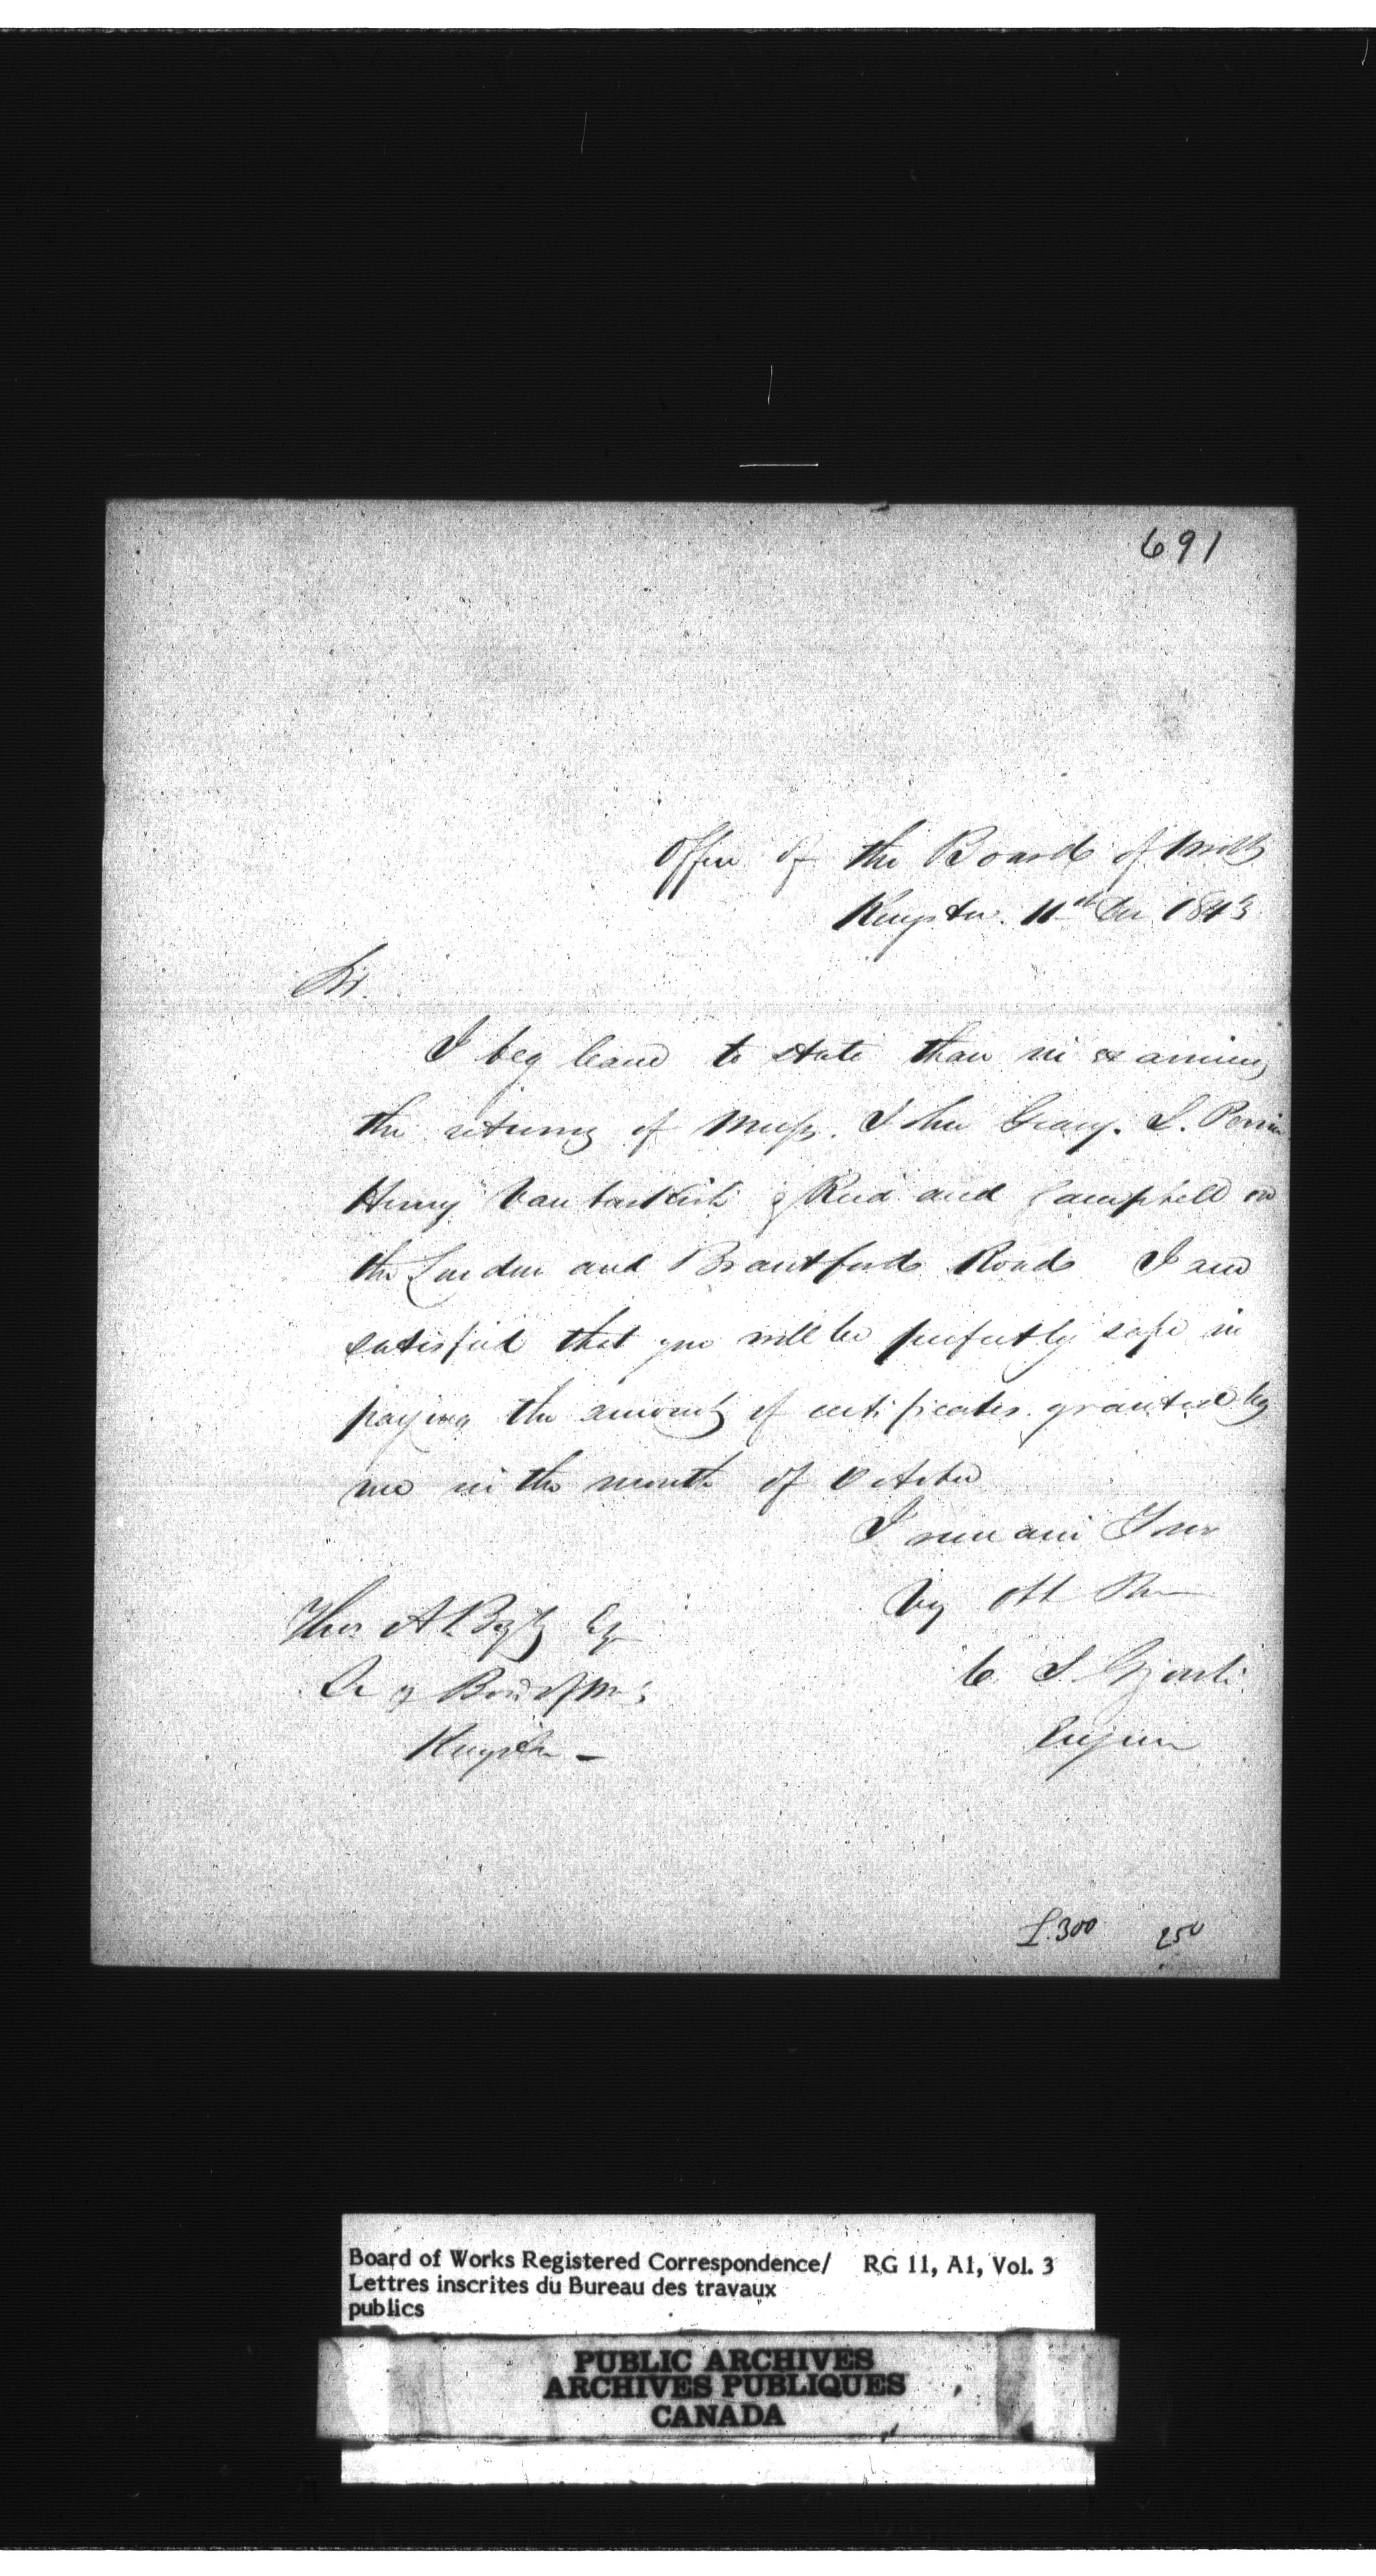 691
Office of the Board of Works
Kingston 11th Dec 1843
Sir.
I beg leave to state than in examining
the returns of Messrs. John Geary. L. Perrin
Henry Van buskirk & Reid and Campbell on
the London and Brantford Road I am
satisfied that you will be perfectly safe in
paying the amounts of certificates granted by
me in the month of October
I remain Your
Very Obt Ser
Thos A Begly Esq
C. S. Gzowski
Sec of Board of Ws
Engineer
Kingston —
£.300 250
Board of Works Registered Correspondence/ RG 11, A1, Vol. 3
Lettres inscrites du Bureau des travaux
publics
PUBLIC ARCHIVES
ARCHIVES PUBLIQUES
CANADA